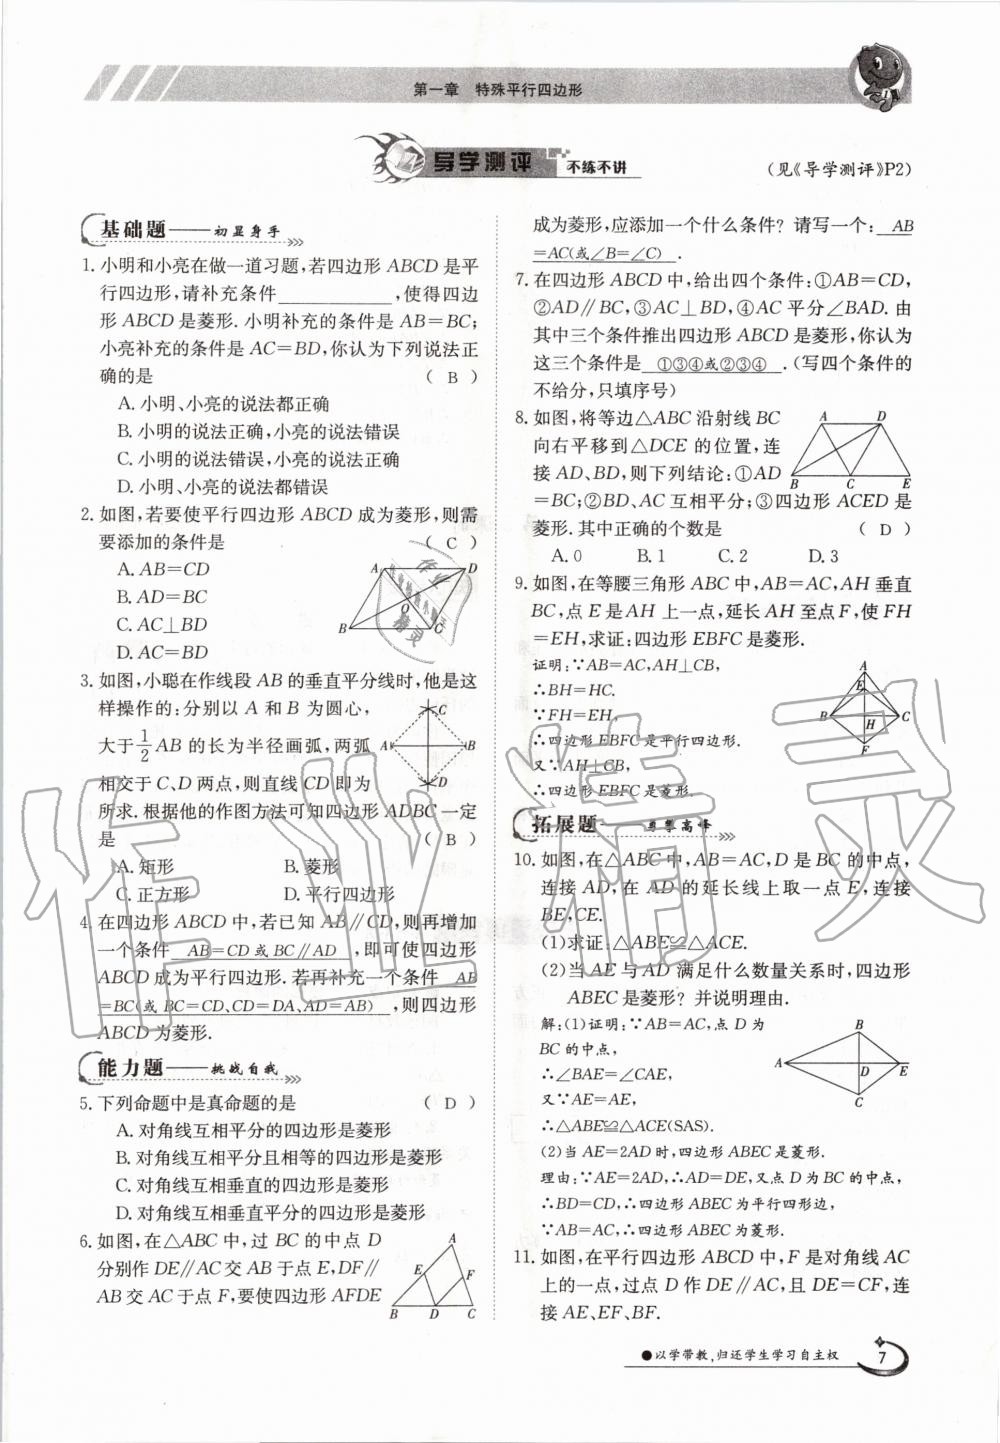 第一章　特殊平行四边形
导学测评 不练不讲
(见《导学测评》P2)
基础题——初显身手
1. 小明和小亮在做一道习题,若四边形 ABCD 是平
行四边形,请补充条件____________,使得四边
形 ABCD 是菱形. 小明补充的条件是 AB=BC;
小亮补充的条件是 AC=BD,你认为下列说法正
确的是 ( B )
A. 小明、小亮的说法都正确
B. 小明的说法正确,小亮的说法错误
C. 小明的说法错误,小亮的说法正确
D. 小明、小亮的说法都错误
2. 如图,若要使平行四边形 ABCD 成为菱形,则需
要添加的条件是 ( C )
A. AB=CD
B. AD=BC
C. AC⊥BD
D. AC=BD
A D O B C
3. 如图,小聪在作线段 AB 的垂直平分线时,他是这
样操作的:分别以 A 和 B 为圆心,
大于 1/2 AB 的长为半径画弧,两弧
相交于 C、D 两点,则直线 CD 即为
所求. 根据他的作图方法可知四边形 ADBC 一定
是 ( B )
A. 矩形 B. 菱形
C. 正方形 D. 平行四边形
C A B D
4. 在四边形 ABCD 中,若已知 AB∥CD,则再增加
一个条件 AB=CD 或 BC∥AD ,即可使四边形
ABCD 成为平行四边形. 若再补充一个条件 AB
=BC(或 BC=CD,CD=DA,AD=AB) ,则四边形
ABCD 为菱形.
能力题——挑战自我
5. 下列命题中是真命题的是 ( D )
A. 对角线互相平分的四边形是菱形
B. 对角线互相平分且相等的四边形是菱形
C. 对角线互相垂直的四边形是菱形
D. 对角线互相垂直平分的四边形是菱形
6. 如图,在△ABC 中,过 BC 的中点 D
分别作 DE∥AC 交 AB 于点 E,DF∥
AB 交 AC 于点 F,要使四边形 AFDE
A E F B D C
成为菱形,应添加一个什么条件? 请写一个: AB
=AC(或∠B=∠C) .
7. 在四边形 ABCD 中,给出四个条件:①AB=CD,
②AD∥BC,③AC⊥BD,④AC 平分∠BAD. 由
其中三个条件推出四边形 ABCD 是菱形,你认为
这三个条件是 ①③④或②③④ .(写四个条件的
不给分,只填序号)
8. 如图,将等边△ABC 沿射线 BC
向右平移到△DCE 的位置,连
接 AD、BD,则下列结论:①AD
=BC;②BD、AC 互相平分;③四边形 ACED 是
菱形. 其中正确的个数是 ( D )
A. 0 B. 1 C. 2 D. 3
A D B C E
9. 如图,在等腰三角形 ABC 中,AB=AC,AH 垂直
BC,点 E 是 AH 上一点,延长 AH 至点 F,使 FH
=EH,求证:四边形 EBFC 是菱形.
证明:∵AB=AC,AH⊥CB,
∴BH=HC.
∵FH=EH,
∴四边形 EBFC 是平行四边形.
又∵AH⊥CB,
∴四边形 EBFC 是菱形.
A E B H C F
拓展题——勇攀高峰
10. 如图,在△ABC 中,AB=AC,D 是 BC 的中点,
连接 AD,在 AD 的延长线上取一点 E,连接
BE,CE.
(1)求证:△ABE≌△ACE.
(2)当 AE 与 AD 满足什么数量关系时,四边形
ABEC 是菱形? 并说明理由.
解:(1)证明:∵AB=AC,点 D 为
BC 的中点,
∴∠BAE=∠CAE,
又∵AE=AE,
∴△ABE≌△ACE(SAS).
(2)当 AE=2AD 时,四边形 ABEC 是菱形.
理由:∵AE=2AD,∴AD=DE,又点 D 为 BC 的中点,
∴BD=CD,∴四边形 ABEC 为平行四边形边,
∵AB=AC,∴四边形 ABEC 为菱形.
B A D E C
11. 如图,在平行四边形 ABCD 中,F 是对角线 AC
上的一点,过点 D 作 DE∥AC,且 DE=CF,连
接 AE、EF、BF.
●以学带教,归还学生学习自主权
7
作业精灵